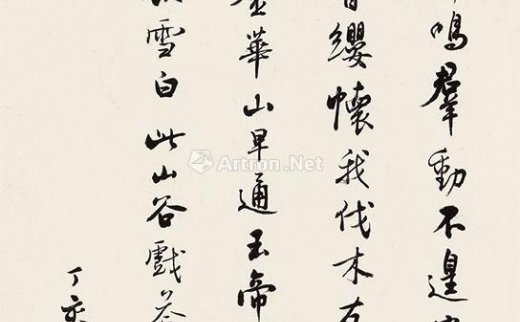 鳴羣動不遑
纓懷我伐木友
華山早通玉帝
雪白此山谷戲答
丁亥
Artron.Net